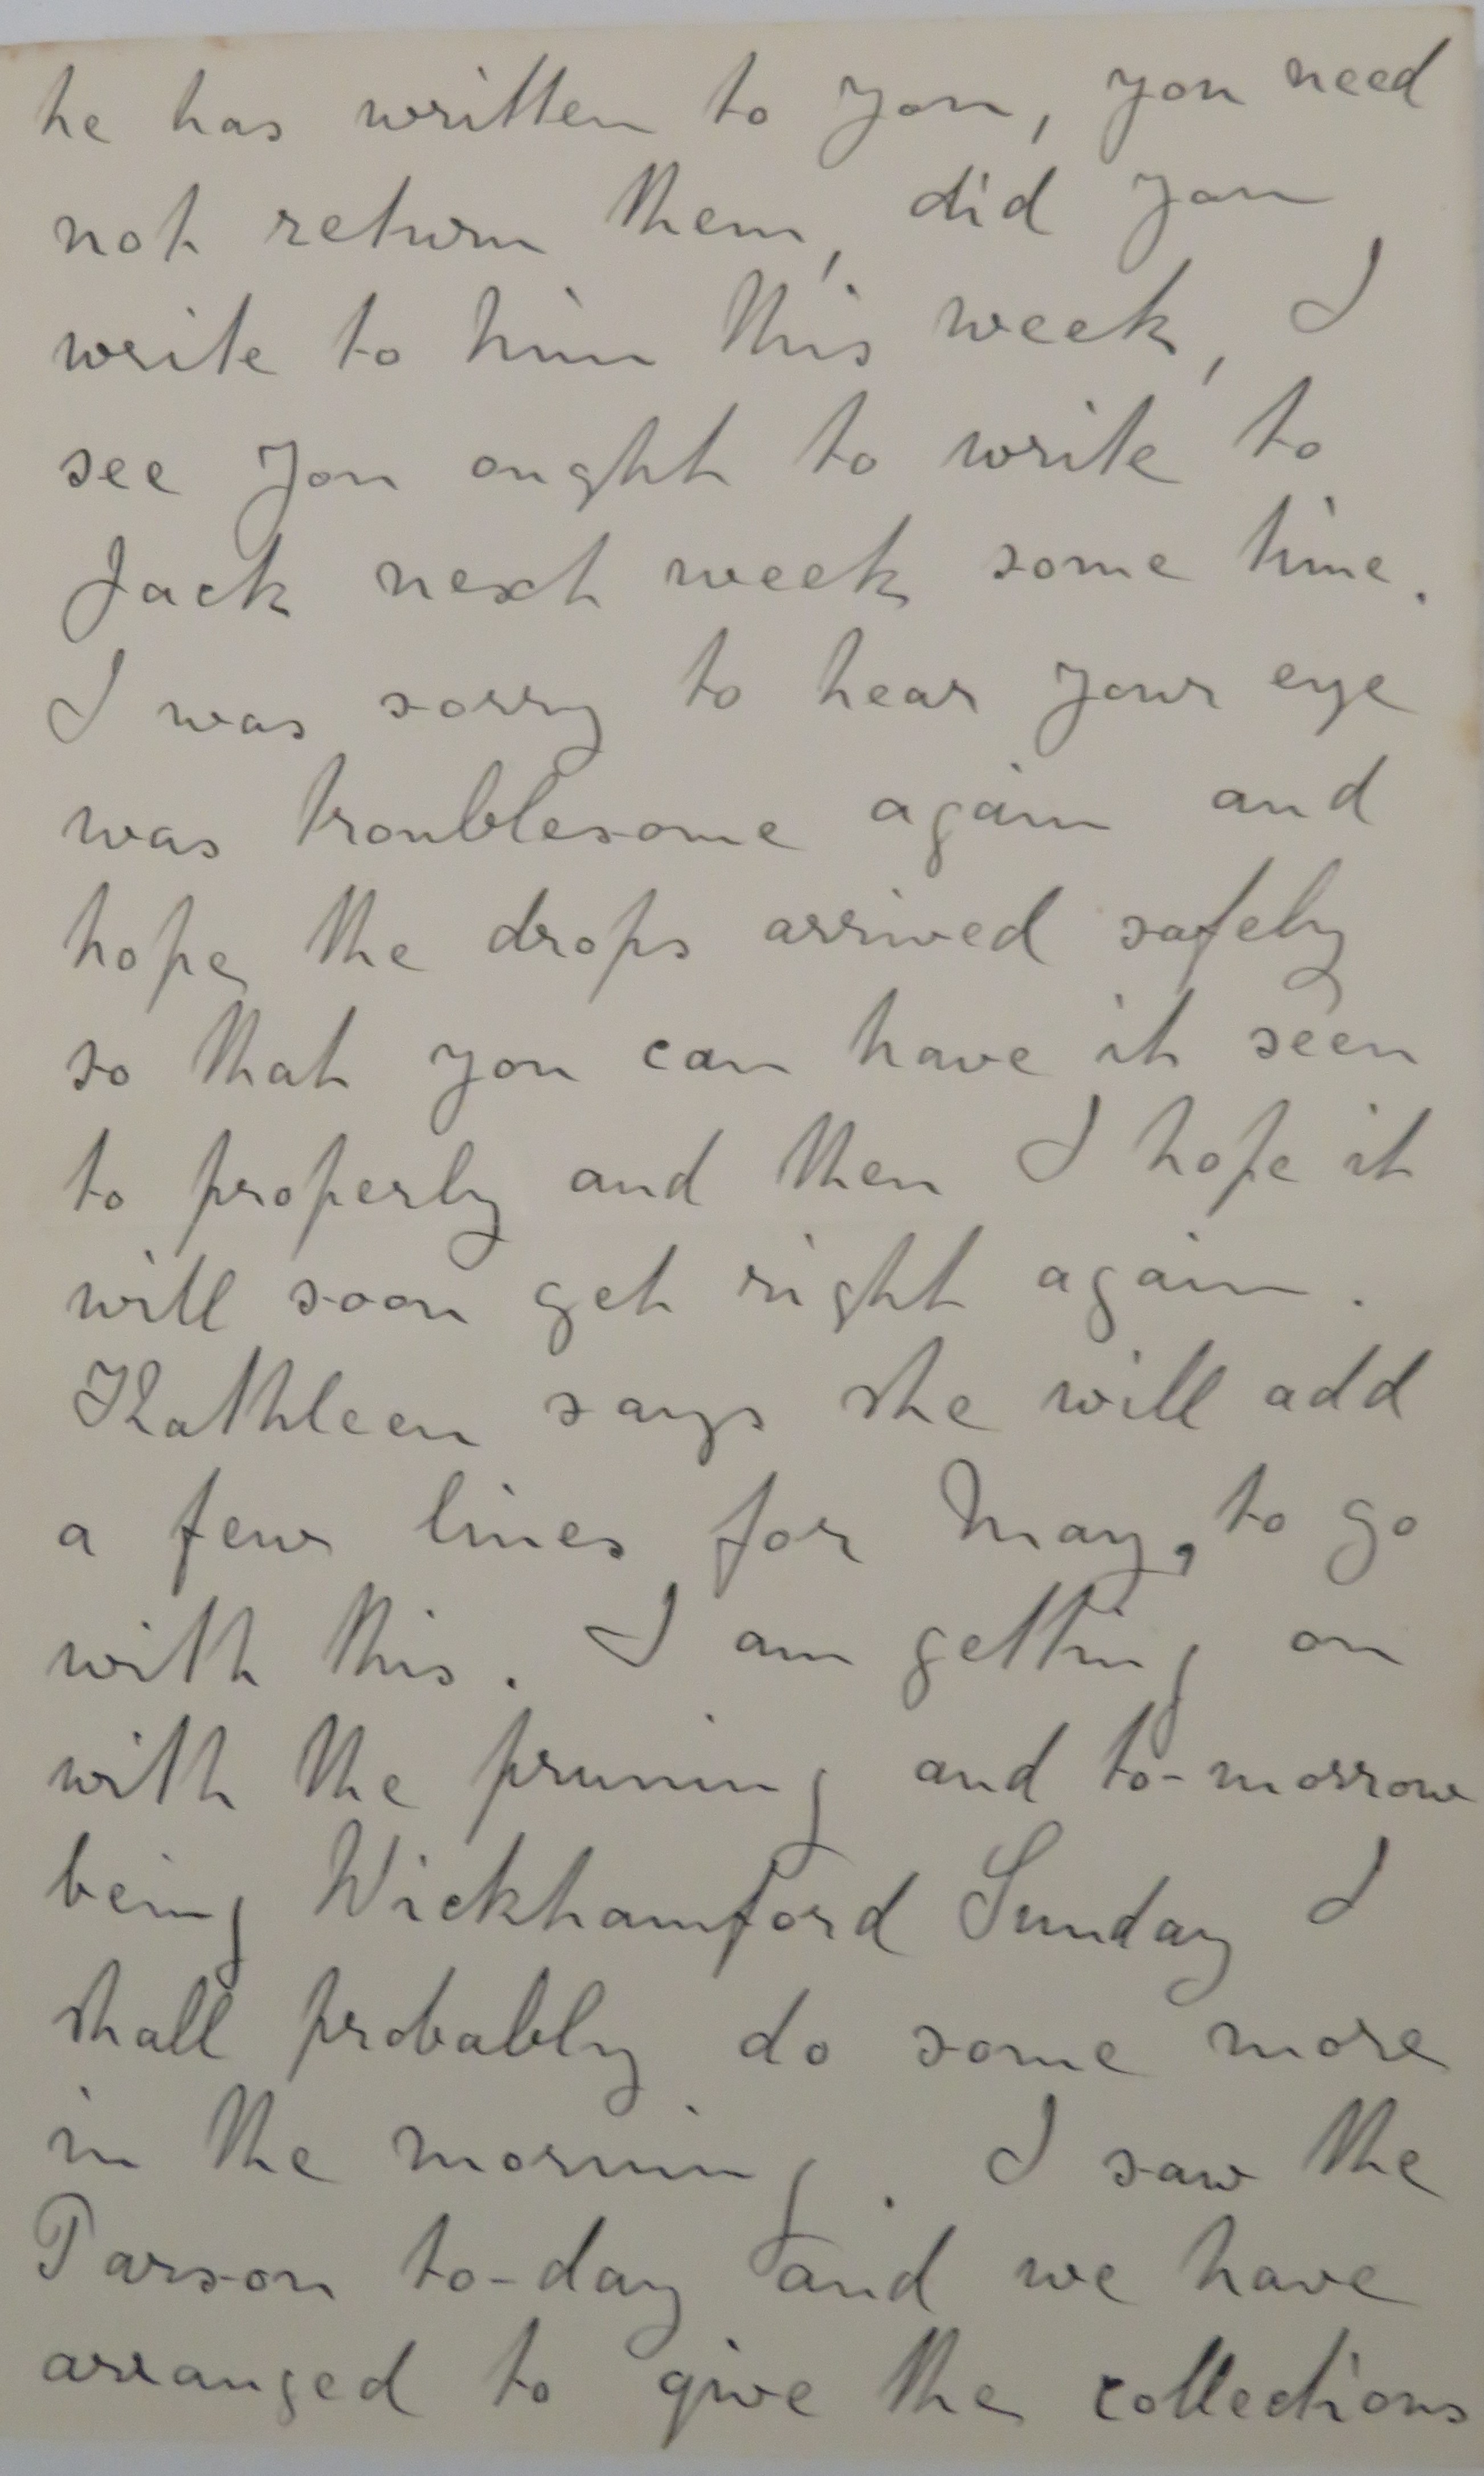 he has written to you, you need
not return them, did you
write to him this week, I
see you ought to write to
Jack next week some time.
I was sorry to hear your eye
was troublesome again and
hope the drops arrived safely
so that you can have it seen
to properly and then I hope it
will soon get right again.
Kathleen says she will add
a few lines for May, to go
with this. I am getting on
with the pruning and to-morrow
being Wickhamford Sunday I
shall probably do some more
in the morning. I saw the
Parson to-day and we have
arranged to give the collections